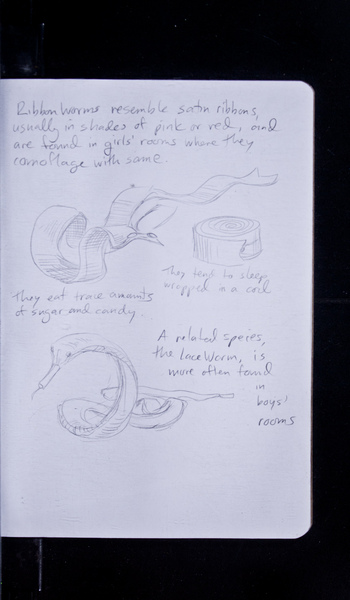 Ribbon Worms resemble satin ribbons,
usually in shades of pink or red, and
are found in girls' rooms where they
camoflage with same.
They tend to sleep
wrapped in a coil
They eat trace amounts
of sugar and candy.
A related species,
the laceWorm, is
more often found
in
boys'
rooms